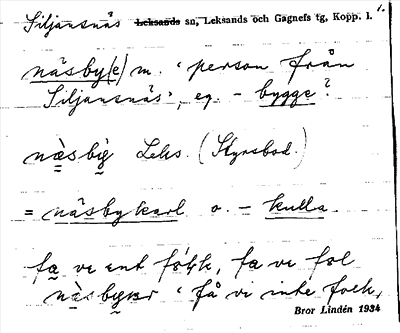 Siljansnäs Leksands sn, Leksands och Gagnefs tg, Kopp. l. 1.
näsby(e) m. 'person från
Siljansnäs', eg. - bygge?
næsbig Leks. (Styrsbod.)
= näsbykarl o. - kulla.
fa ve ent fókk, fa ve fol
næsbyar 'få vi inte folk,
Bror Lindén 1934